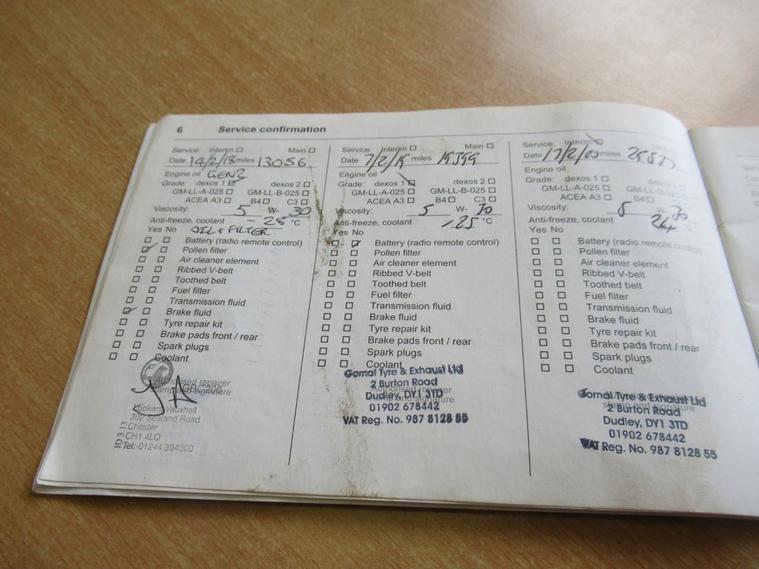 6 Service confirmation
Service: Interim Main
Date 14/2/18 miles 13056
Engine oil GEN2
Grade: dexos 1 dexos 2
GM-LL-A-025 GM-LL-B-025
ACEA A3 B4 C3
Viscosity: 5 W- 30
Anti-freeze, coolant - 28 °C
Yes No OIL + FILTER
Battery (radio remote control)
Pollen filter
Air cleaner element
Ribbed V-belt
Toothed belt
Fuel filter
Transmission fluid
Brake fluid
Tyre repair kit
Brake pads front / rear
Spark plugs
Coolant
Authorised repairer
stamp and signature
Lookers Vauxhall
302 Sealand Road
Chester
CH1 4LQ
Tel:-01244 394300
Service: Interim Main
Date 7/2/19 miles 19399
Engine oil
Grade: dexos 1 dexos 2
GM-LL-A-025 GM-LL-B-025
ACEA A3 B4 C3
Viscosity: 5 W- 30
Anti-freeze, coolant -25 °C
Yes No
Battery (radio remote control)
Pollen filter
Air cleaner element
Ribbed V-belt
Toothed belt
Fuel filter
Transmission fluid
Brake fluid
Tyre repair kit
Brake pads front / rear
Spark plugs
Coolant
Gornal Tyre & Exhaust Ltd
2 Burton Road
Dudley, DY1 3TD
01902 678442
VAT Reg. No. 987 8128 55
Service: Interim Main
Date 17/2/20 miles
Engine oil
Grade: dexos 1 dexos 2
GM-LL-A-025 GM-LL-B-025
ACEA A3 B4 C3
Viscosity: 5 W- 30
Anti-freeze, coolant 24 °C
Yes No
Battery (radio remote control)
Pollen filter
Air cleaner element
Ribbed V-belt
Toothed belt
Fuel filter
Transmission fluid
Brake fluid
Tyre repair kit
Brake pads front / rear
Spark plugs
Coolant
Gornal Tyre & Exhaust Ltd
2 Burton Road
Dudley, DY1 3TD
01902 678442
VAT Reg. No. 987 8128 55